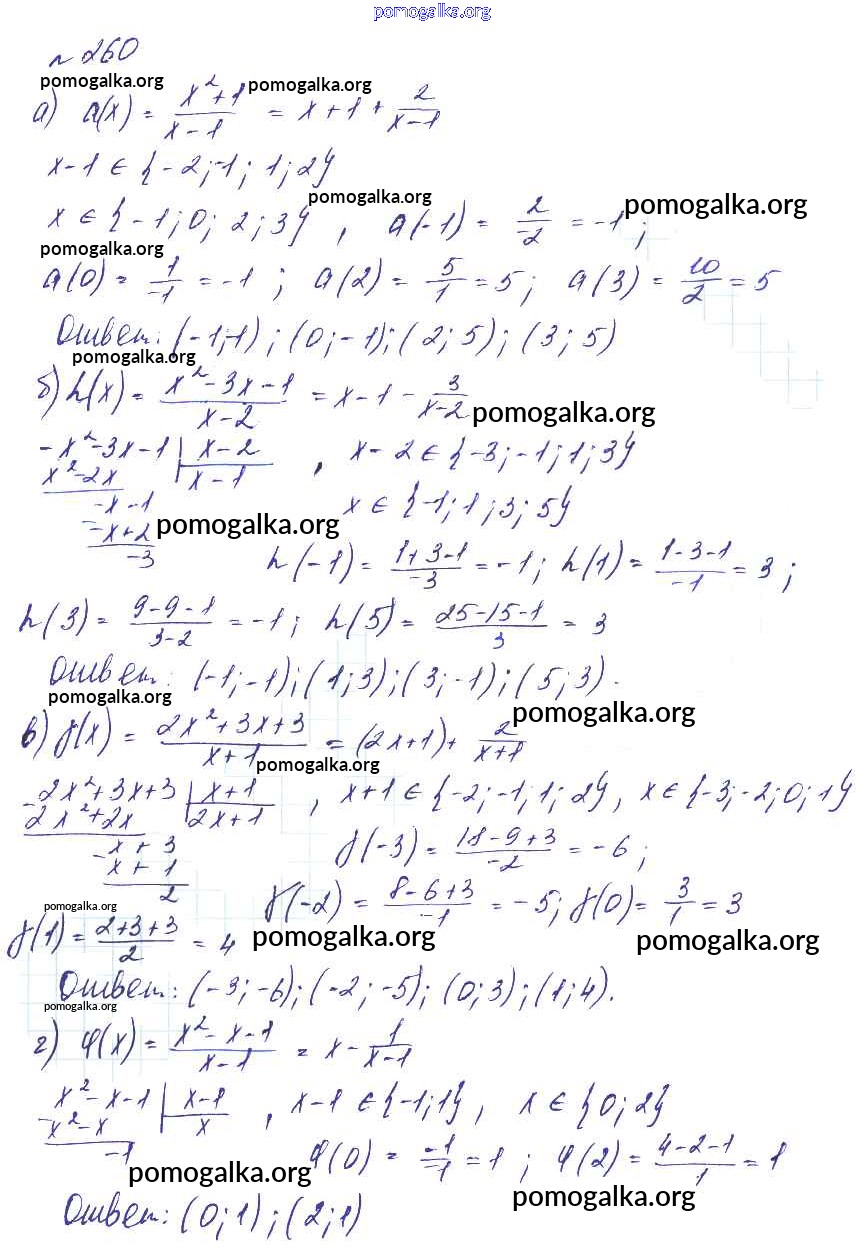 pomogalka.org
№ 260
pomogalka.org pomogalka.org
а) a(x) = (x²+1)/(x-1) = x+1+ 2/(x-1)
x-1 ∈ {-2;-1; 1; 2}
pomogalka.org pomogalka.org
x ∈ {-1; 0; 2; 3} , a(-1) = 2/-2 = -1 ;
pomogalka.org
a(0) = 1/-1 = -1 ; a(2) = 5/1 = 5; a(3) = 10/2 = 5
Ответ: (-1;-1) ; (0; -1); (2; 5) ; (3; 5)
pomogalka.org
б) h(x) = (x²-3x-1)/(x-2) = x-1 - 3/(x-2)
pomogalka.org
- x²-3x-1 | x-2 , x-2 ∈ {-3; -1; 1; 3}
x²-2x x-1
-x-1 x ∈ {-1; 1; 3; 5}
-x+2 pomogalka.org
-3
h(-1) = (1+3-1)/-3 = -1; h(1) = (1-3-1)/-1 = 3 ;
h(3) = (9-9-1)/(3-2) = -1; h(5) = (25-15-1)/3 = 3
Ответ: (-1; -1); (1; 3); (3; -1); (5; 3).
pomogalka.org pomogalka.org
в) f(x) = (2x²+3x+3)/(x+1) = (2x+1)+ 2/(x+1)
pomogalka.org
- 2x²+3x+3 | x+1 , x+1 ∈ {-2; -1; 1; 2}, x ∈ {-3; -2; 0; 1}
2x²+2x 2x+1
- x+3 f(-3) = (18-9+3)/-2 = -6 ;
x+1
2
pomogalka.org f(-2) = (8-6+3)/-1 = -5; f(0)= 3/1 = 3
f(1) = (2+3+3)/2 = 4 pomogalka.org pomogalka.org
Ответ: (-3; -6); (-2; -5); (0; 3) ; (1; 4).
pomogalka.org
г) φ(x) = (x²-x-1)/(x-1) = x - 1/(x-1)
- x²-x-1 | x-1 , x-1 ∈ {-1; 1} , x ∈ {0; 2}
x²-x x
-1 φ(0) = -1/-1 = 1 ; φ(2) = (4-2-1)/1 = 1
pomogalka.org pomogalka.org
Ответ: (0; 1) ; (2; 1)